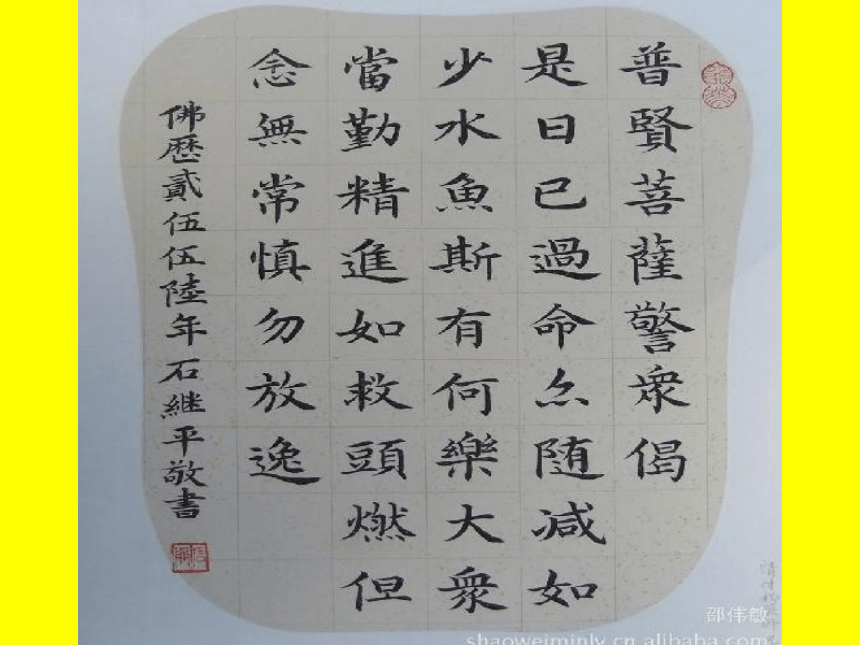 普賢菩薩警衆偈
是日已過命亦随減如
少水魚斯有何樂大衆
當勤精進如救頭燃但
念無常慎勿放逸
佛歷貳伍伍陸年石継平敬書
邵伟敏
shaoweiminly.cn.alibaba.com